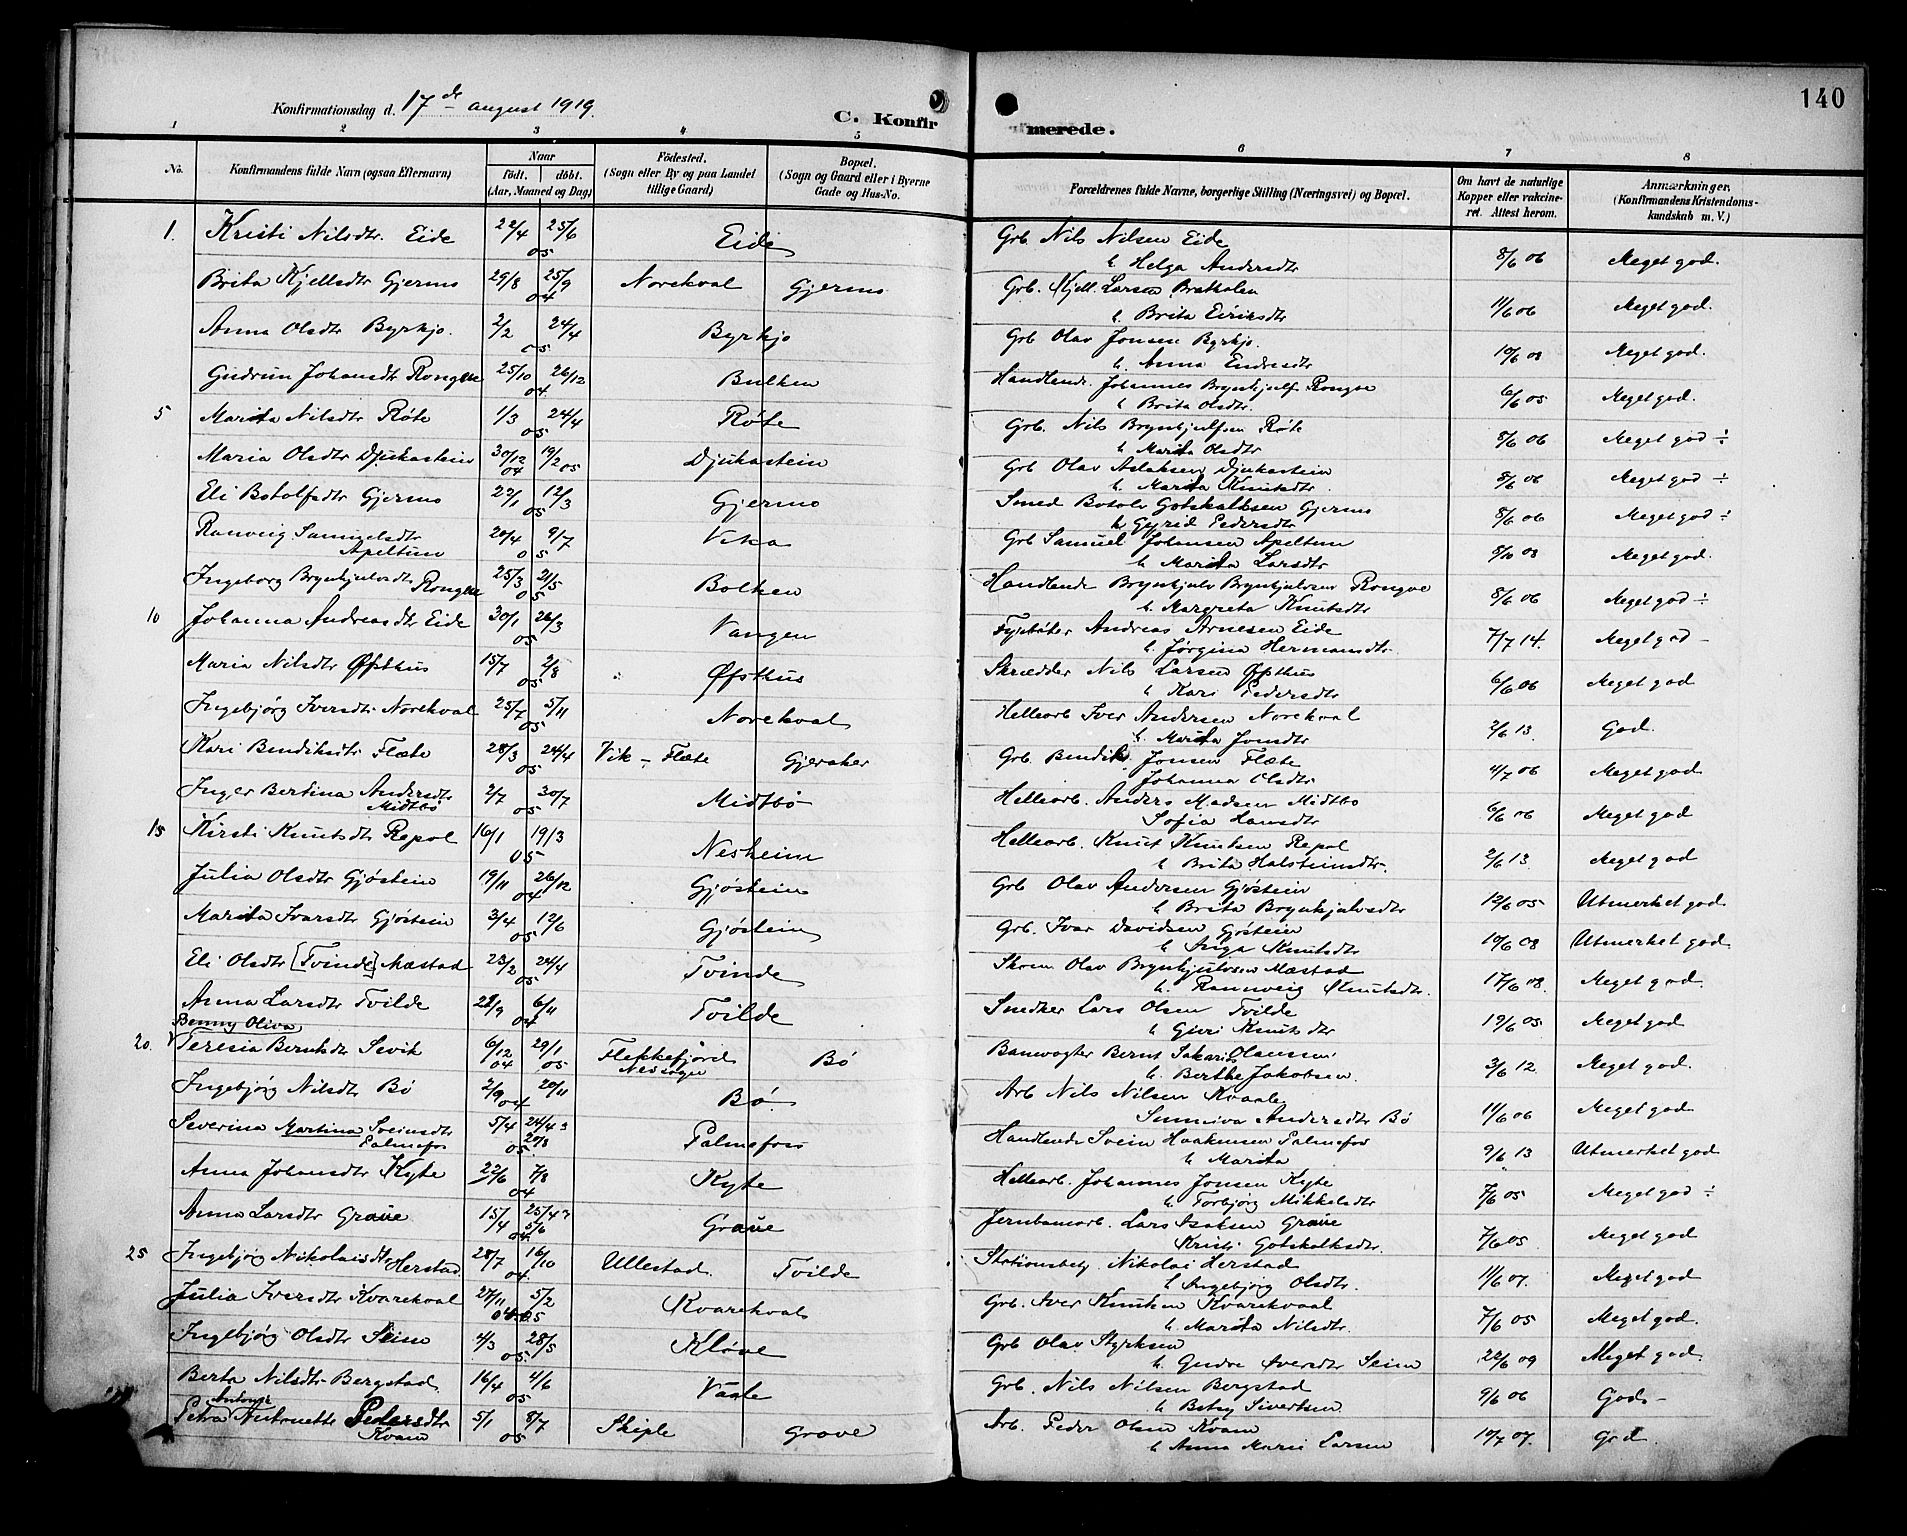 140
Konfirmationsdag d. 17de august 1919.
C. Konfirmerede.
1 2 3 4 5 6 7 8
No. Konfirmandens fulde Navn (ogsaa Efternavn) Naar født. døbt. (Aar, Maaned og Dag) Fødested. (Sogn eller By og paa Landet tillige Gaard) Bopæl. (Sogn og Gaard eller i Byerne Gade og Hus-No. Forældrenes fulde Navne, borgerlige Stilling (Næringsvei) og Bopæl. Om havt de naturlige Kopper eller vakcineret. Attest herom. Anmærkninger. (Konfirmandens Kristendomskundskab m. V.)
1. Kristi Nilsdtr. Eide 22/4 25/6 05 Eide Grb. Nils Nilsen Eide 8/6 06 Meget god.
h. Helga Andersdtr
Brita Kjellsdtr Gjermo 29/8 25/9 04 Norekval Gjermo Grb. Kjell Larsen Bratholen 11/6 06 Meget god.
h. Brita Eiriksdtr
Anna Olsdtr Byrkjo. 2/2 24/4 05 Byrkjo Grb Olav Jonsen Byrkjo. 10/6 08 Meget god.
h. Anna Endresdtr
Gudrun Johansdtr Rongve 25/10 26/12 04 Bulken Handlende. Johannes Brynhjulfs Rongve 6/6 05 Meget god.
h Brita Olsdtr.
5 Marita Nilsdtr Røte 1/3 24/4 05 Røte Grb. Nils Brynhjulfsen Røte 8/6 06 Meget god ÷
h Marita Olsdtr
Maria Olsdtr Djukastein 30/12 04 19/2 05 Djukastein Grb Olav Aslaksen Djukastein 8/6 06 Meget god ÷
h. Marita Knutsdtr.
Eli Botolfsdtr Gjermo 22/1 12/3 05 Gjermo Smed Botolv Gotskalksen Gjermo 8/6 06 Meget god ÷
h Gyrid Pedersdtr
Ranveig Samuelsdtr Apeltun 20/4 9/7 05 Vika Grb Samuel Johansen Apeltun 8/10 08 Meget god.
h. Marita Larsdtr
Ingeborg Brynhjulvsdtr Rongve 25/3 21/5 05 Bolken Handlende Brynhjulv Brynhjulvsen Rongve 8/6 06 Meget god ÷
h. Margreta Knutsdtr
10 Johanna Andreasdtr Eide 30/1 26/3 05 Vangen Fyrbøter Andreas Arnesen Eide 7/7 14. Meget god -
h. Jørgina Hermansdtr.
Maria Nilsdtr Øfsthus 15/7 2/8 05 Øfsthus Skrædder Nils Larsen Øfsthus 6/6 06 Meget god
h Kari Pedersdtr
Ingebjørg Iversdtr Norekval 25/7 5/11 05 Norekval Hellearb Iver Andersen Norekval 2/6 13. God.
h. Marita Jonsdtr
Kari Bendiksdtr Flæte 28/3 24/4 05 Vik - Flæte Gjeraker Grb. Bendik Jonsen Flæte 4/7 06 Meget god
Johanna Olsdtr
Inger Bertina Andersdtr Midtbø 2/7 30/7 05 Midtbø Hellearb. Anders Madsen Midtbø 6/6 06 Meget god
Sofia Hansdtr
15 Kirsti Knutsdtr Repal 16/1 19/3 05 Nesheim Hellearb. Knut Knutsen Repal 2/6 13. Meget god
h Brita Halsteinsdtr.
Julia Olsdtr Gjøstein 19/11 26/12 04 Gjøstein Grb Olav Andersen Gjøstein 12/6 05 Utmerket god
h Brita Brynhjulvsdtr
Marita Ivarsdtr Gjøstein 3/4 12/6 05 Gjøstein Grb. Ivar Davidsen Gjøstein 10/6 08 Utmerket god
h Inga Knutsdtr
Eli Olsdtr [Tvinde] Mæstad 23/2 24/4 05 Tvinde Skom Olav Brynhjulvsen Mæstad 17/6 08. Meget god.
h. Rannveig Knutsdtr.
Anna Larsdtr Tvilde 22/9 6/11 04 Tvilde Snedker Lars Olsen Tvilde 19/6 05 Meget god
h Guri Knutsdtr
Benny Oliva
20. Teresia Berntsdtr Sevik 6/12 04 29/1 05 Flekkefjord Nessogn Bø Banevogter Bernt Sakarias Olaussen 3/6 12. Meget god.
h. Berthe Jakobsen.
Ingebjørg Nilsdtr Bø 2/9 20/11 04 Bø. Arb Nils Nilsen Kvaale 11/6 06 Meget god
Sunniva Andersdtr Bø
Severina Martina Sveinsdtr Palmafos 5/4 24/4? 27/8 05. Palmafoss Handlende Svein Haakensen Palmafos 9/6 13 Utmerket god
h Marita
Anna Johansdtr Kyte 22/6 7/8 04 Kyte Hellearb. Johannes Jonsen Kyte 7/6 05 Meget god ÷
h Torbjørg Mikkelsdtr
Anna Larsdtr Graue 15/4 25/4? 5/6 04. Graue Jernbanearb. Lars Isaksen Graue 7/6 05. Meget god
Kristi Gotskalksdtr.
25 Ingebjørg Nikolaisdtr Herstad 28/7 16/10 04. Ullestad. Tvilde Stationsbetj. Nikolai Herstad 11/6 07. Meget god
h Ingebjørg Olsdtr.
Julia Iversdtr Kvarekval 27/11 04 5/2 05 Kvarekval Grb. Iver Knutsen Kvarekvaal 7/6 05 Meget god.
h. Marita Nilsdtr.
Ingebjørg Olsdtr Seim 4/3 28/5 05. Kløve Grb Olav Styrksen 22/6 09 Meget god.
h. Gudve Iversdtr Seim
Berta Nilsdtr Bergstad. 16/4 4/6 05 Væte Grb. Nils Nilsen Bergstad 9/6 06 God -
h. Betsy Sivertsen.
Petra Antonette Pedersdtr Kvam 5/1 8/7 05 Skiple Grove Arb. Peder Olsen Kvam 10/7 07. God.
h Anna Marie Larsen